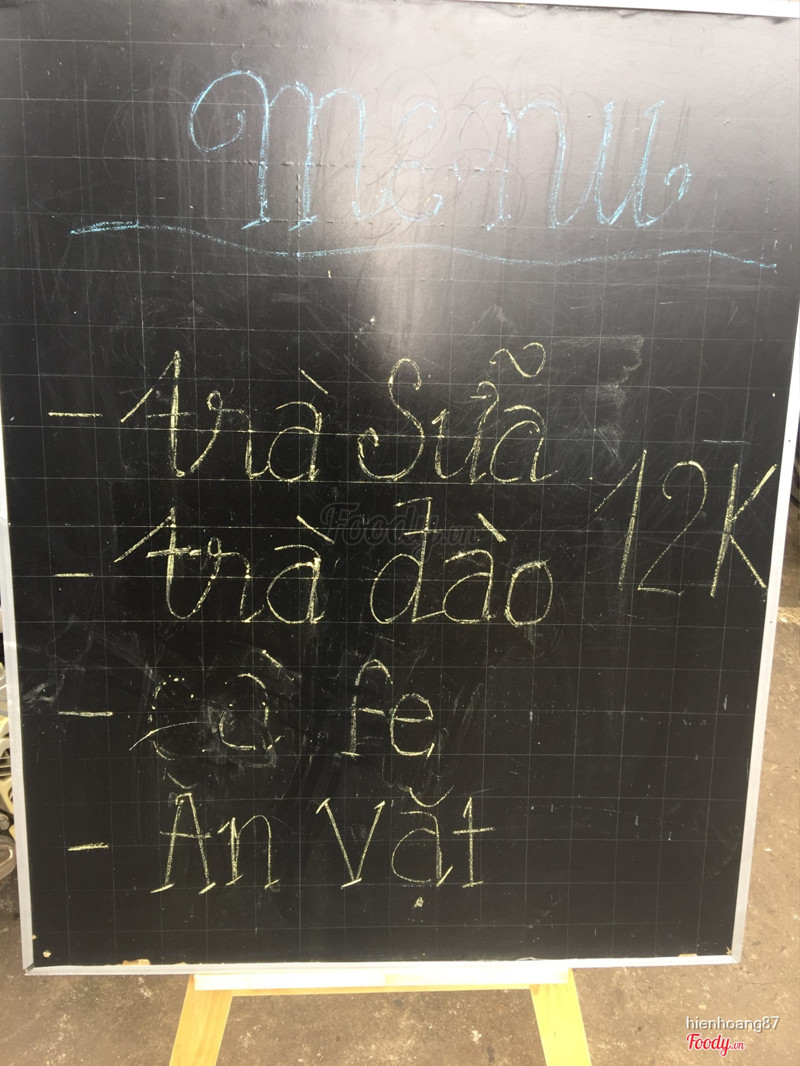 Menu
- trà Sữa
12K
- trà đào
- cà fe
- Ăn Vặt
Foody.vn
hienhoang87
Foody.vn